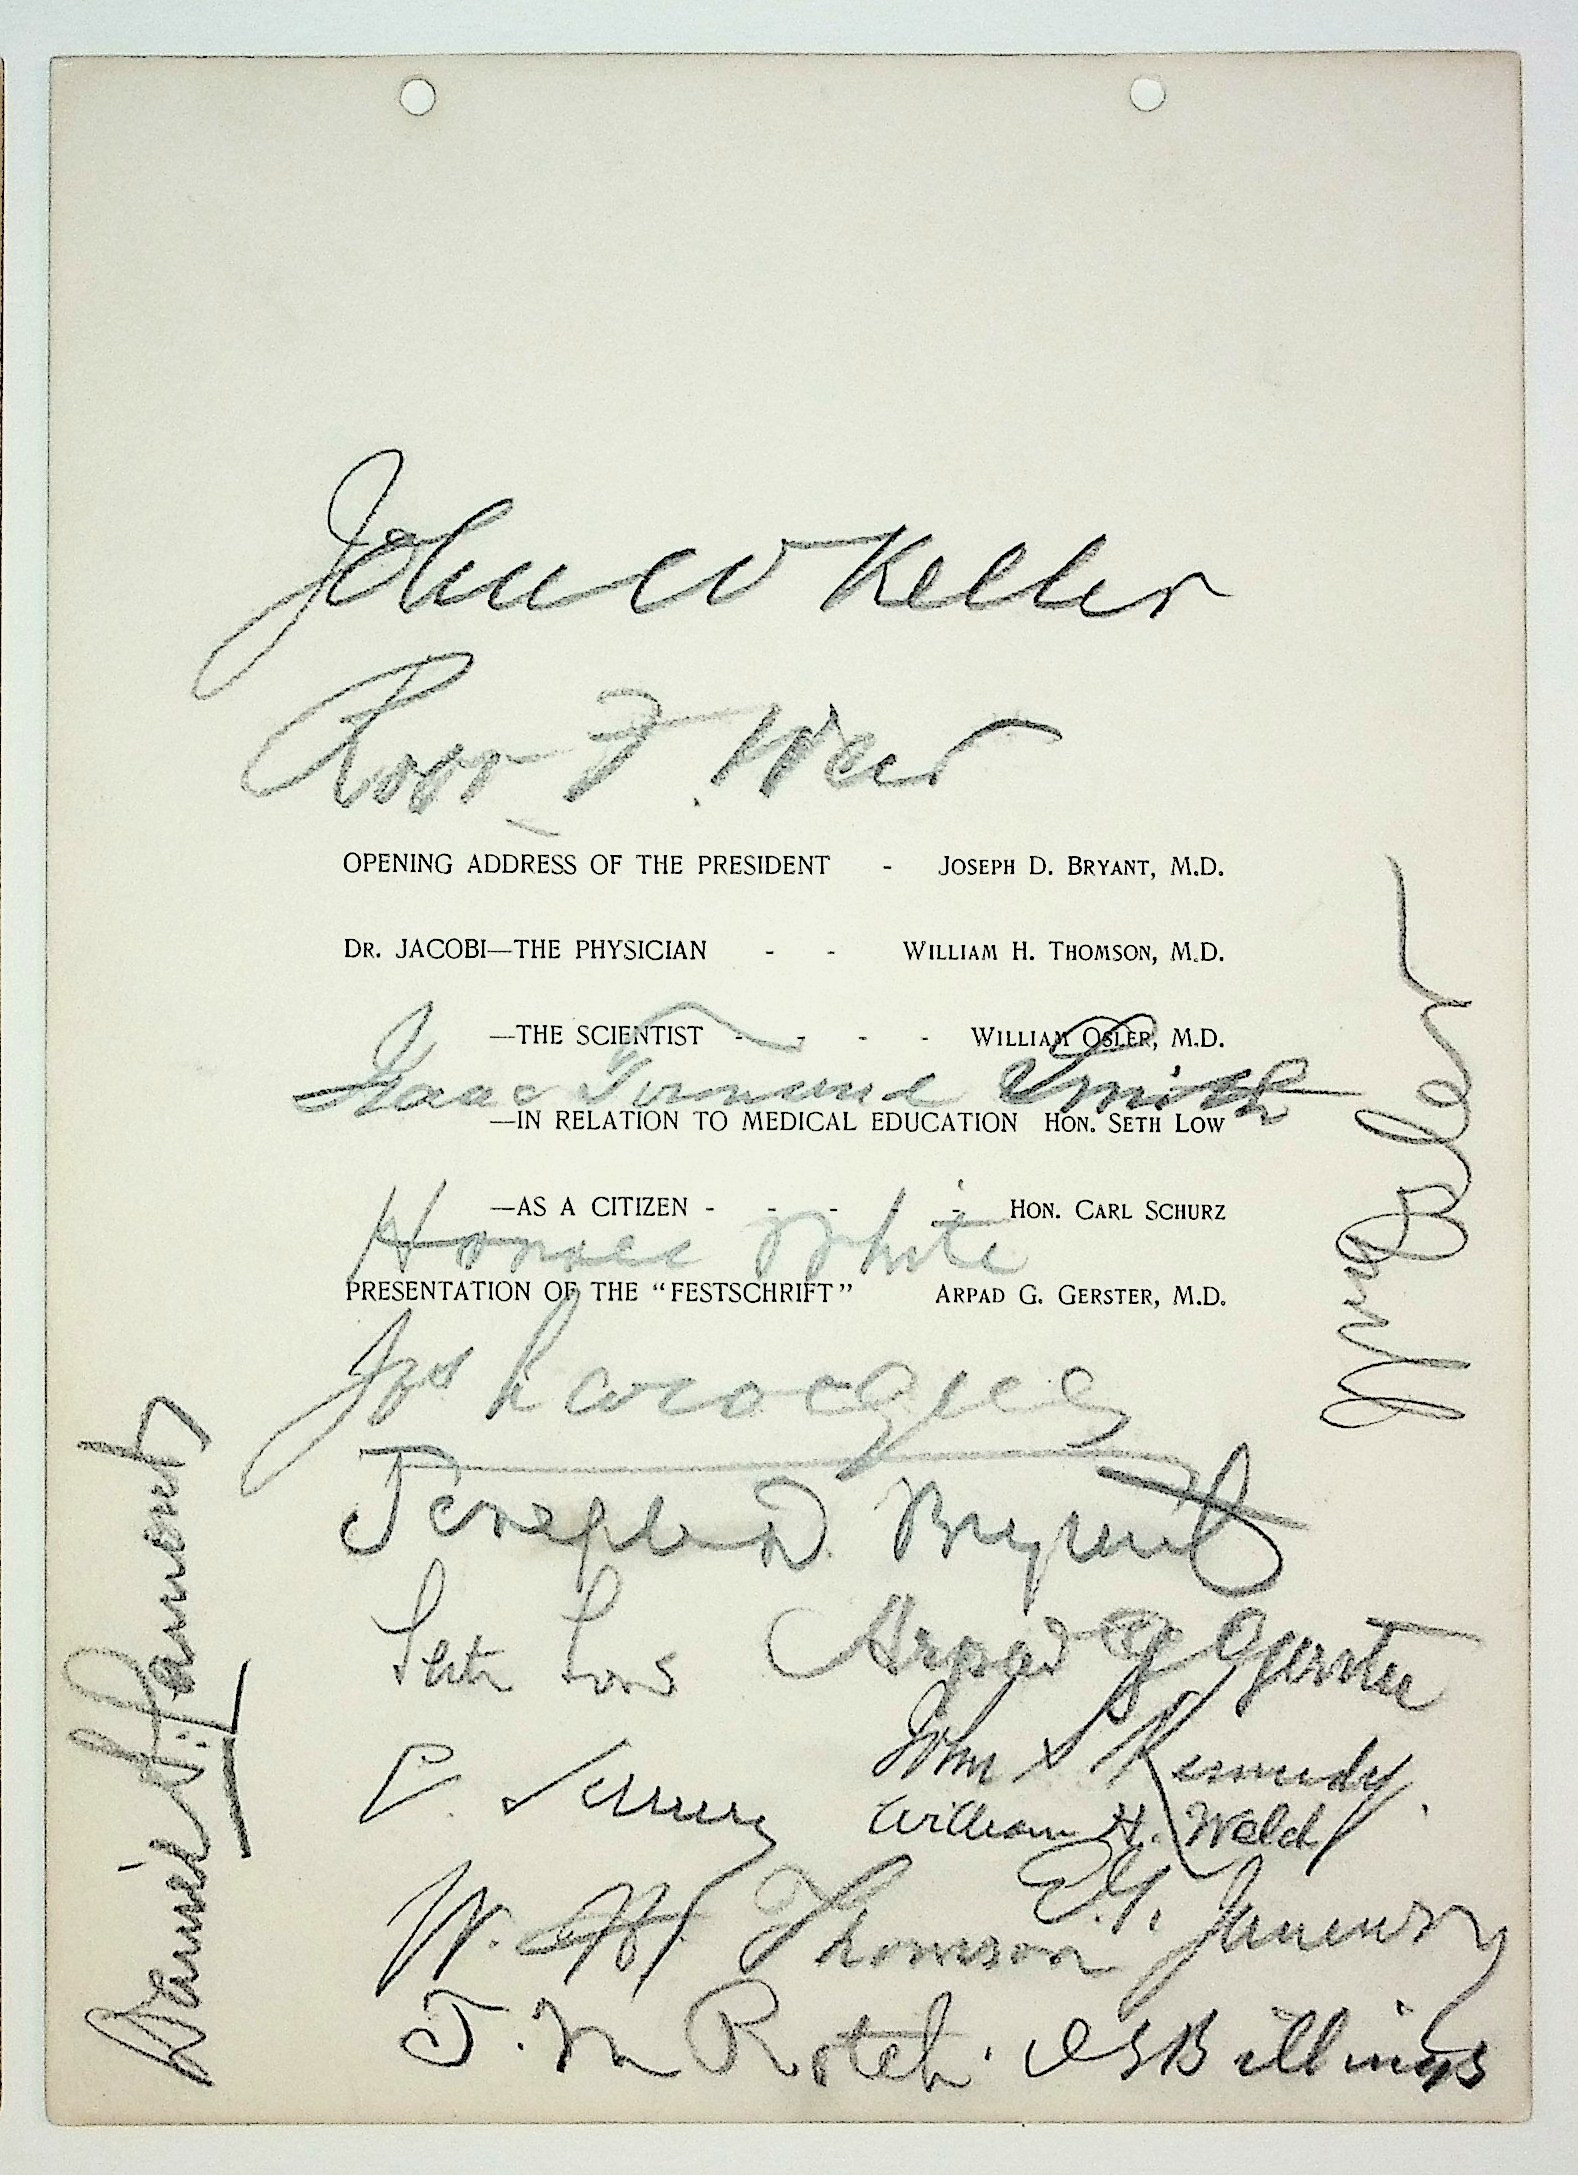 John W Keller
Robt F. Weir
OPENING ADDRESS OF THE PRESIDENT - JOSEPH D. BRYANT, M.D.
DR. JACOBI—THE PHYSICIAN - - WILLIAM H. THOMSON, M.D.
—THE SCIENTIST - - - - WILLIAM OSLER, M.D.
Isaac Smith
—IN RELATION TO MEDICAL EDUCATION HON. SETH LOW
—AS A CITIZEN - - - - - HON. CARL SCHURZ
Horace White
PRESENTATION OF THE “FESTSCHRIFT” ARPAD G. GERSTER, M.D.
Joseph D. Bryant
Seth Low Arpad G Gerster
John S Kennedy.
C. Schurz
William H. Welch
W. H. Thomson E.G. Janeway
T. M Rotch. J S Billings
Wm Osler